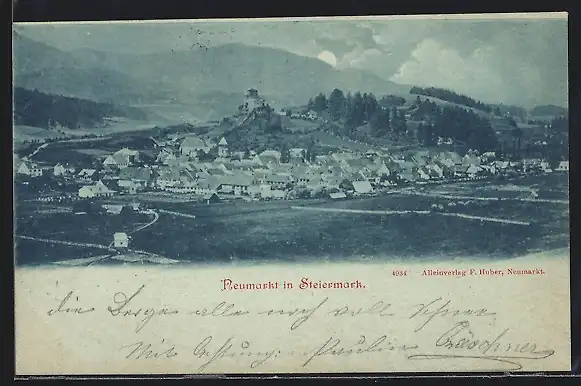 Neumarkt in Steiermark.
4934 Alleinverlag F. Huber, Neumarkt.
die Berge alle noch voll Schnee
Mit Achtung: Pauline